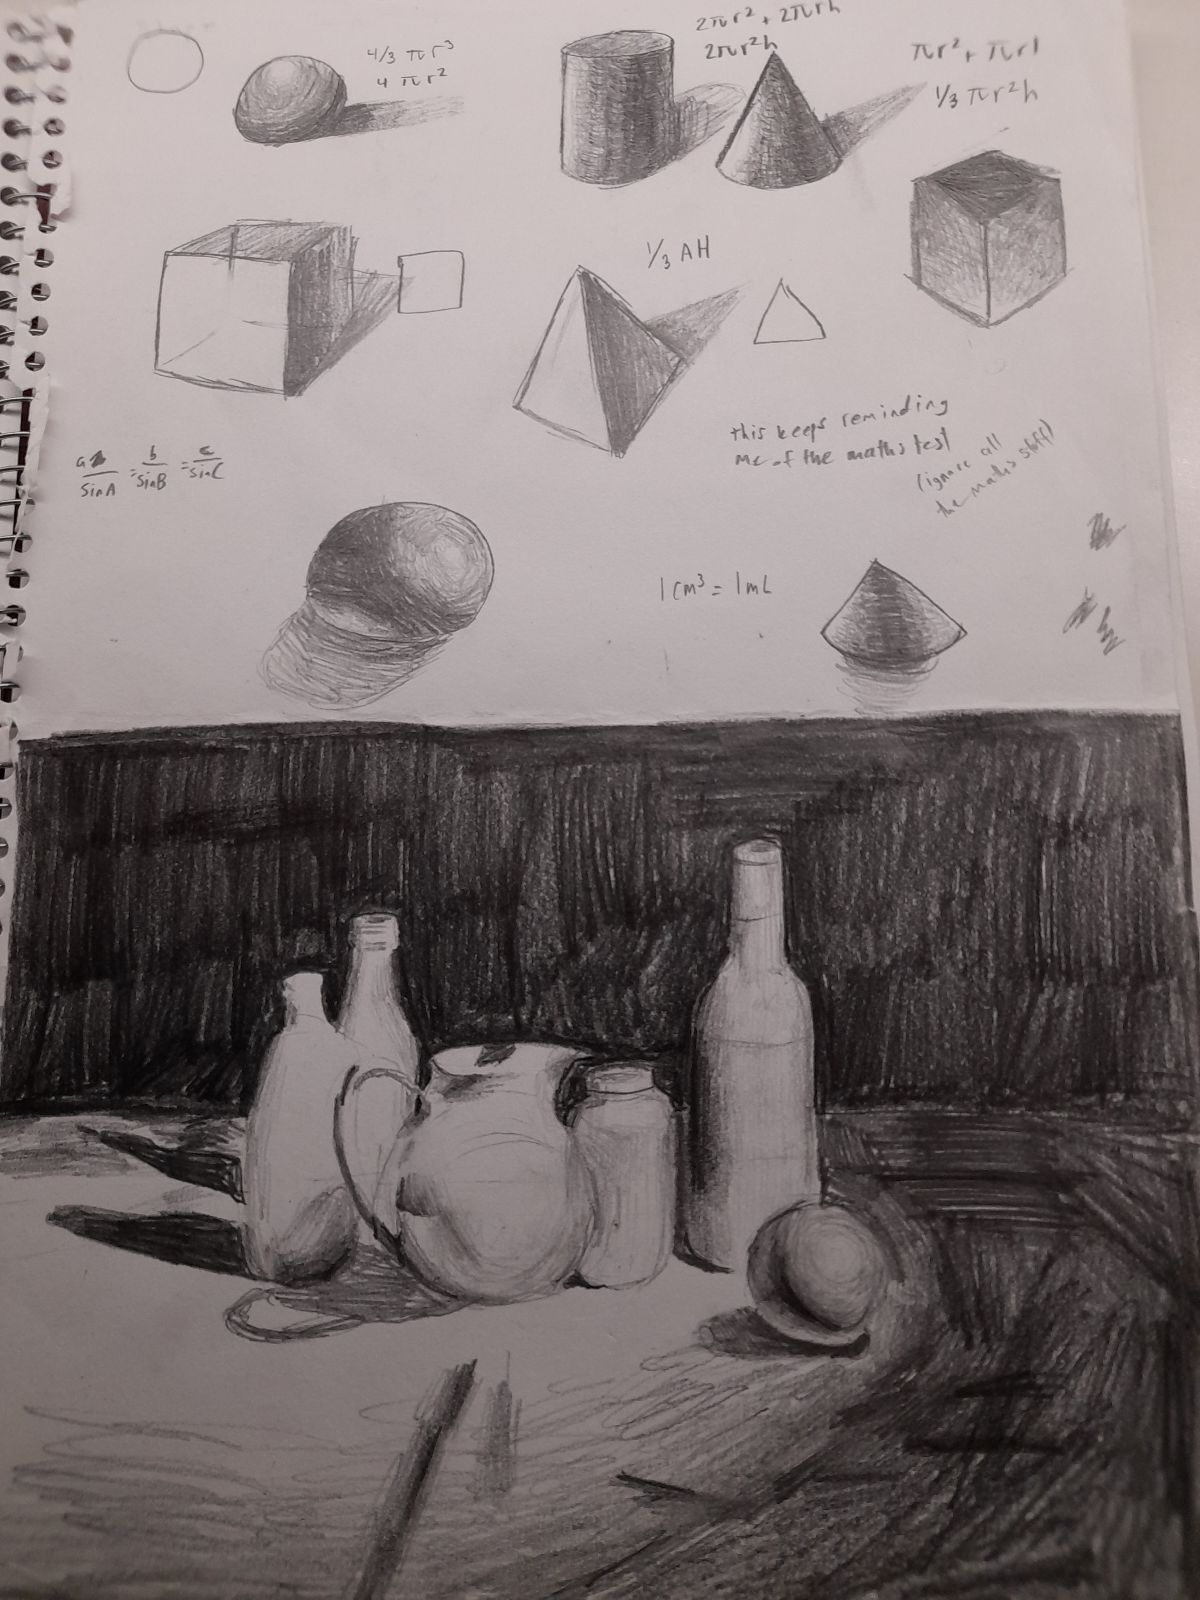 4/3 πr³
4 πr²
2πr² + 2πrh
2πr²h
πr² + πrl
1/3 πr²h
1/3 AH
this keeps reminding
me of the maths test
(ignore all
the maths stuff)
a/sinA = b/sinB = c/sinC
1cm³ = 1mL